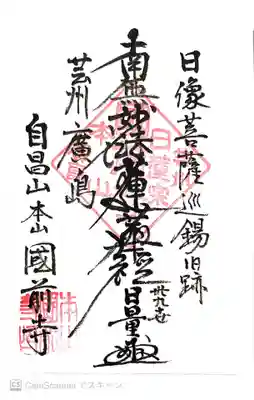 日像菩薩巡錫旧跡
南無妙法蓮華経
卅九世
日量
芸州 廣島
自昌山本山國前寺
日蓮宗
CS CamScanner でスキャン